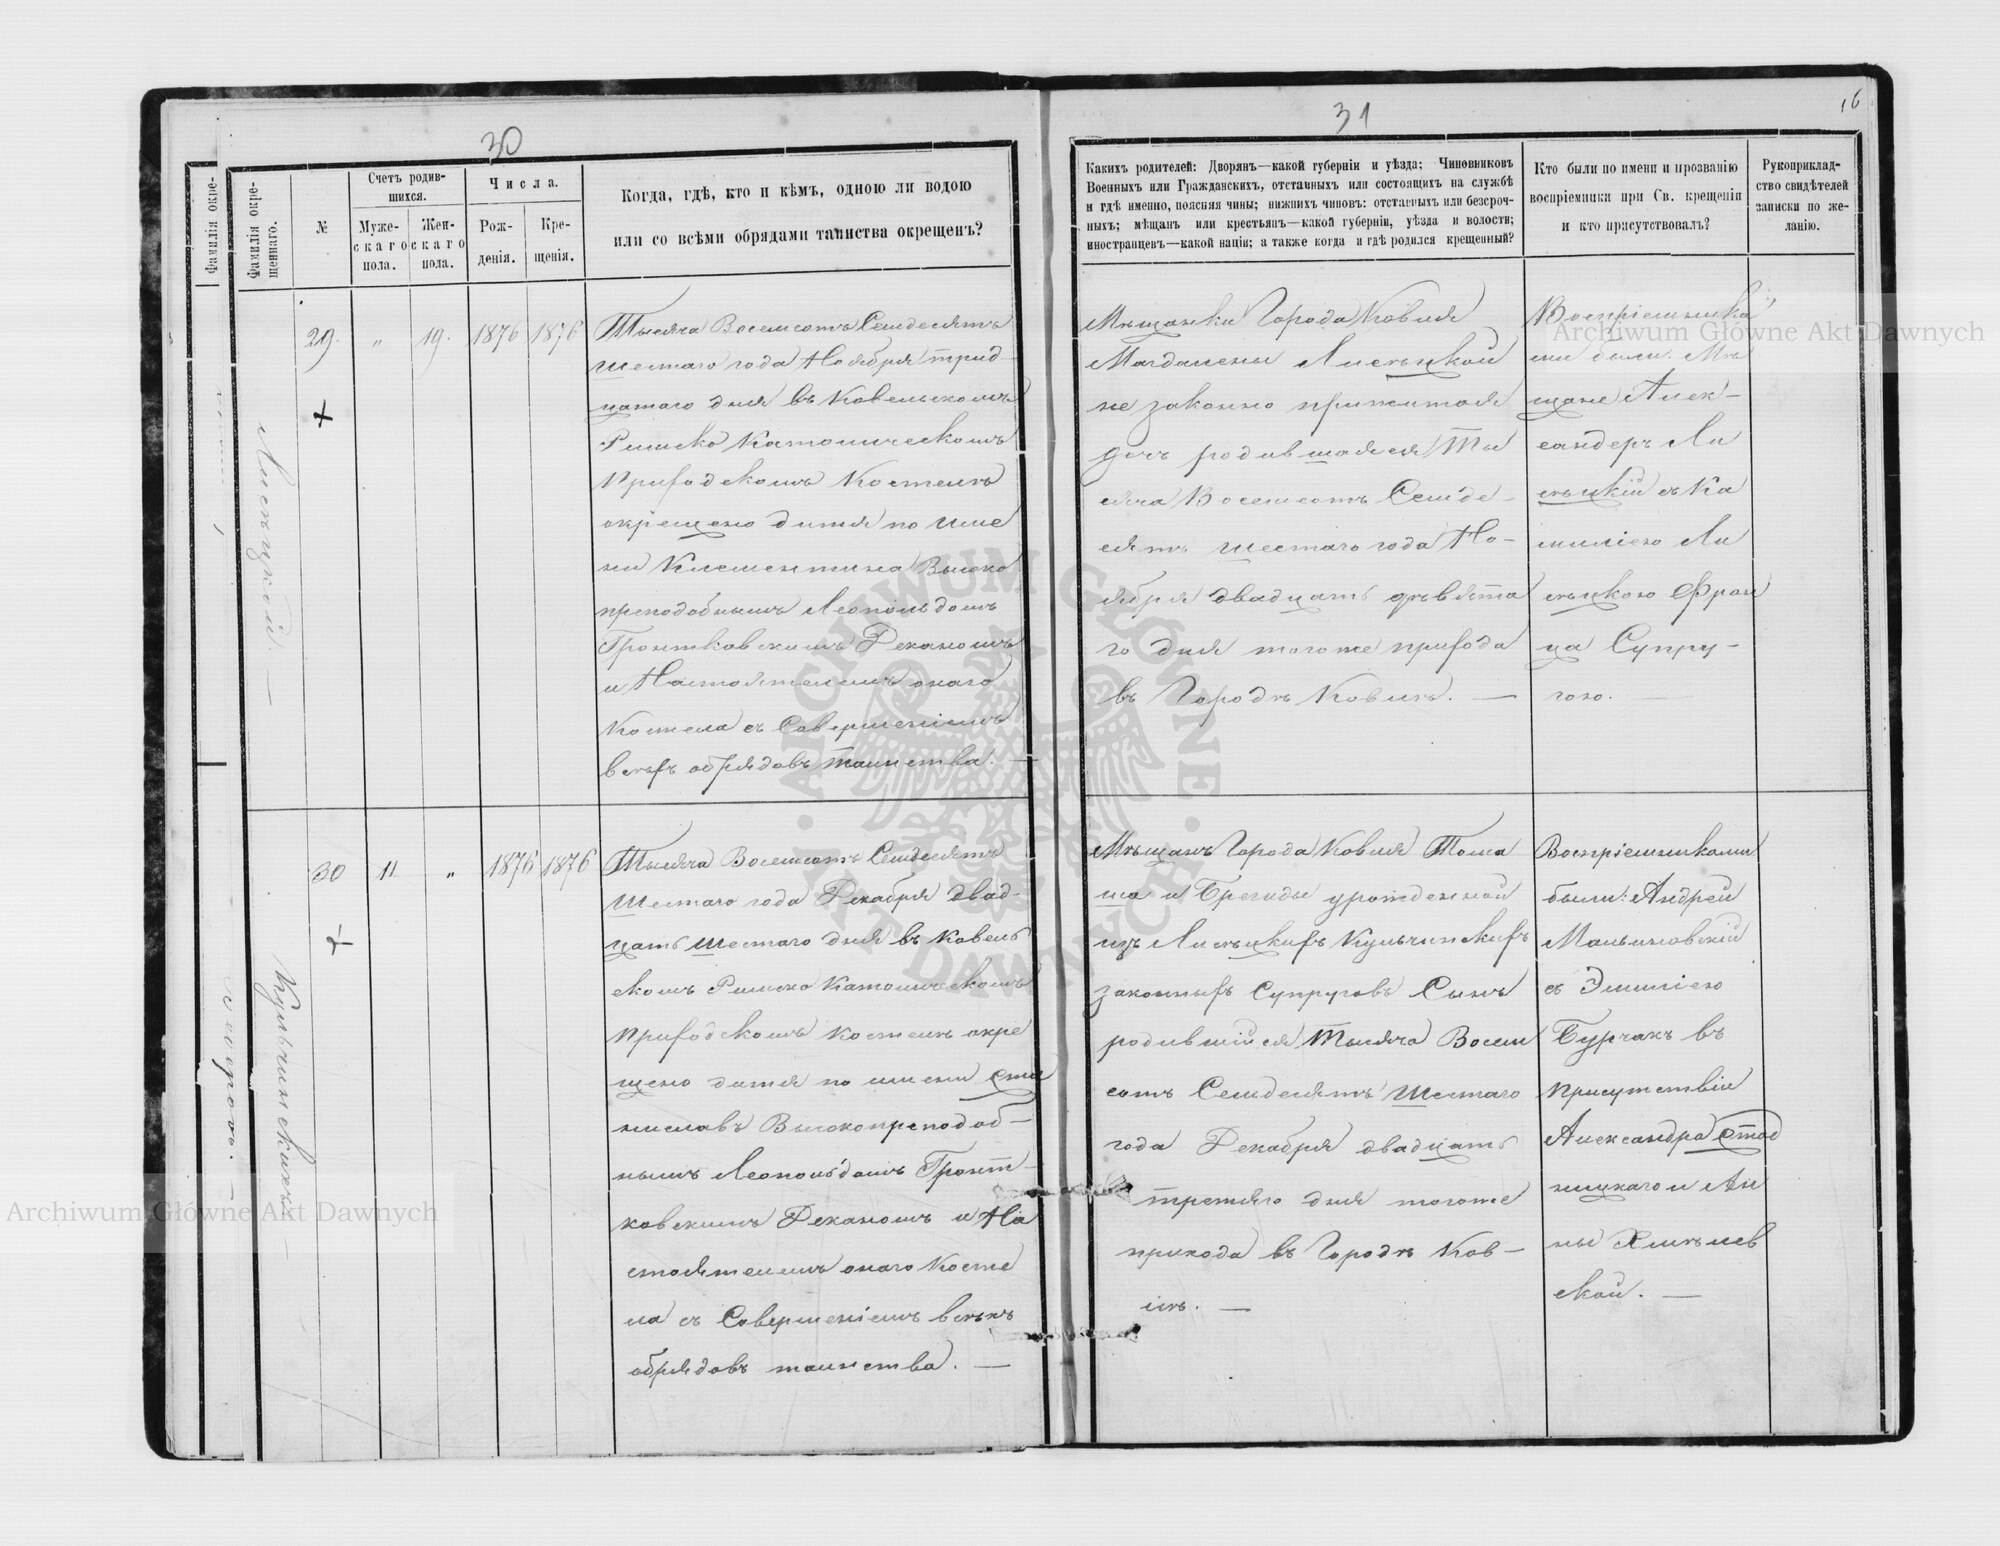 30
31
16
Фамилія окре-
Фамилія окре-
щеннаго.
№
Счетъ родив-
шихся.
Муже-
скаго
пола.
Жен-
скаго
пола.
Числа.
Рож-
денія.
Кре-
щенія.
Когда, гдѣ, кто и кѣмъ, одною ли водою
или со всѣми обрядами таинства окрещенъ?
Каких родителей: Дворянъ—какой губерніи и уѣзда; Чиновниковъ
Военныхъ или Гражданскихъ, отставныхъ или состоящихъ на службѣ
и гдѣ именно, поясняя чины; нижнихъ чиновъ: отставныхъ или безсроч-
ныхъ; мѣщанъ или крестьянъ—какой губерніи, уѣзда и волости;
иностранцевъ—какой націи; а также когда и гдѣ родился крещенный?
Кто были по имени и прозванію
воспріемники при Св. крещеніи
и кто присутствовалъ?
Рукоприклад-
ство свидѣтелей
записки по же-
ланію.
Лисѣцкой. —
29.
"
19.
1876
1876
Тысяча Восемсотъ Семдесятъ
шестаго года Ноября трид-
цатаго дня въ Ковельскомъ
Римско Католическомъ
Приходскомъ Костелѣ
окрещено дитя по име
ни Клементина Высоко
преподобнымъ Леопольдомъ
Гронтковскимъ Деканомъ
и Настоятелемъ онаго
Костела съ Совершеніемъ
всѣхъ обрядовъ таинства. —
Мѣщанки Города Ковля
Магдалены Лисѣцкой
не законно прижитая
дочь родившаяся Ты
сяча Восемсотъ Семде-
сятъ шестаго года Но-
ября двадцать девята
го дня тогоже прихода
въ Городѣ Ковлѣ. —
Воспріемника
ми были: Мѣ
щане Алек-
сандеръ Ли
сѣцкій съ Ка
милією Ли
сѣцкою Фран
ца Супру-
гою. —
Кульчинскихъ —
30
11
"
1876
1876
Тысяча Восемсотъ Семдесятъ
Шестаго года Декабря двад-
цать шестаго дня въ Ковель
скомъ Римско Католическомъ
Приходскомъ костелѣ окре
щено дитя по имени Ста
ниславъ Высокопреподоб-
нымъ Леопольдомъ Гронт-
ковскимъ Деканомъ и На
стоятелемъ онаго Косте
ла съ Совершеніемъ всѣхъ
обрядовъ таинства. —
Мѣщанъ Города Ковля Тома
ша и Брегиды урожденной
изъ Лисѣцкихъ Кульчинскихъ
законныхъ Супруговъ Сынъ
родившійся Тысяча Восем
сотъ Семдесятъ Шестаго
года Декабря двадцать
третяго дня тогоже
прихода въ Городѣ Ков-
лѣ. —
Воспріемниками
были: Андрей
Малиновскій
съ Эмилією
Бурчакъ въ
присутствіи
Александра Стад
ницкаго и Ан
ны Хмѣлев
ской. —
Archiwum Główne Akt Dawnych
Archiwum Główne Akt Dawnych
ARCHIWUM GŁÓWNE AKT DAWNYCH